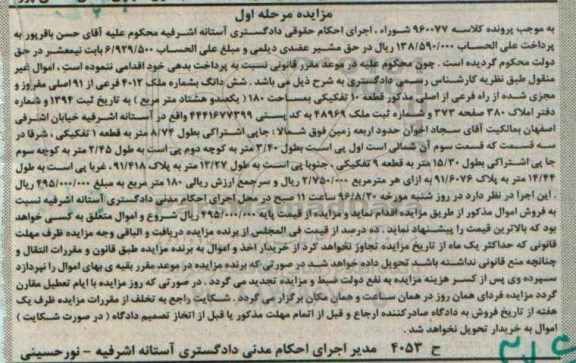 مزایده مرحله اول
به موجب پرونده کلاسه ۹۶۰۰۷۷ شوراء ، اجرای احکام حقوقی دادگستری آستانه اشرفیه محکوم علیه آقای حسن باقرپور به
پرداخت علی الحساب ۱۳۸/۵۹۰/۰۰۰ ریال در حق مشیر عضدی دیلمی و مبلغ علی الحساب ۶/۹۲۹/۵۰۰ بابت نیمعشر در حق
دولت محکوم گردیده است . چون محکوم علیه در موعد مقرر قانونی نسبت به پرداخت بدهی خود اقدامی ننموده است ، اموال غیر
منقول طبق نظریه کارشناس رسمی دادگستری به شرح ذیل می باشد . شش دانگ بشماره ملک ۴۰۱۲ فرعی از ۹۱ اصلی مفروز و
مجزی شده از راه فرعی از اصلی مذکور قطعه ۱۰ تفکیکی بمساحت ۱۸۰ ( یکصدو هشتاد متر مربع ) به تاریخ ثبت ۱۳۹۴ و شماره
دفتر املاک ۳۸۰ صفحه ۳۷۳ و شماره ثبت ملک ۴۸۹۶۹ به کد پستی ۴۴۴۱۶۷۷۳۹۹ واقع در آستانه اشرفیه خیابان اشرفی
اصفهان بمالکیت آقای سجاد اخوان حدود اربعه زمین فوق شمالا : جایی اشتراکی بطول ۸/۷۴ متر به قطعه ۱ تفکیکی ، شرقا در
سه قسمت که قسمت سوم آن شمالی است اول پی است بطول ۳/۴۰ متر به کوچه دوم پی است به طول ۲/۴۵ متر به کوچه سوم
جا پی اشتراکی بطول ۱۵/۳۰ متر به قطعه ۹ تفکیکی ، جنوبا پی است به طول ۱۲/۲۷ متر به پلاک ۹۱/۴۱۸ ، غربا پی است به طول
۱۴/۴۴ متر به پلاک ۹۱/۶۰۷۶ به ازای هر مترمربع ۲/۷۵۰/۰۰۰ ریال و سرجمع ارزش ریالی ۱۸۰ متر مربع به مبلغ ۴۹۵/۰۰۰/۰۰۰ ریال
. این اجرا در نظر دارد در روز شنبه مورخه ۹۶/۸/۲۰ ساعت ۱۱ صبح در محل اجرای احکام مدنی دادگستری آستانه اشرفیه نسبت
به فروش اموال مذکور از طریق مزایده اقدام نماید و مزایده از قیمت پایه ۴۹۵/۰۰۰/۰۰۰ ریال شروع و اموال متعلق به کسی خواهد
بود که بالاترین قیمت را پیشنهاد نماید . ده درصد از قیمت فی المجلس از برنده مزایده دریافت و الباقی وجه مزایده ظرف مهلت
قانونی که حداکثر یک ماه از تاریخ مزایده تجاوز نخواهد کرد از خریدار اخذ و اموال به برنده مزایده طبق قانون و مقررات انتقال و
چنانچه منع قانونی نداشته باشد تحویل داده خواهد شد . در صورتی که برنده مزایده در موعد مقرر بقیه ی بهای اموال را نپردازد
سپرده وی پس از کسر هزینه مزایده به نفع دولت ضبط و مزایده تجدید می گردد . در صورتی که روز مزایده با ایام تعطیل مقارن
گردد مزایده فردای همان روز در همان ساعت و همان مکان برگزار می گردد . شکایت راجع به تخلف از مقررات مزایده ظرف یک
هفته از تاریخ فروش به دادگاه صادرکننده ارجاع و قبل از اتمام مهلت مذکور یا قبل از اتخاذ تصمیم دادگاه ( در صورت شکایت )
اموال به خریدار تحویل نخواهد شد .
ح ۴۰۵۳ مدیر اجرای احکام مدنی دادگستری آستانه اشرفیه - نورحسینی